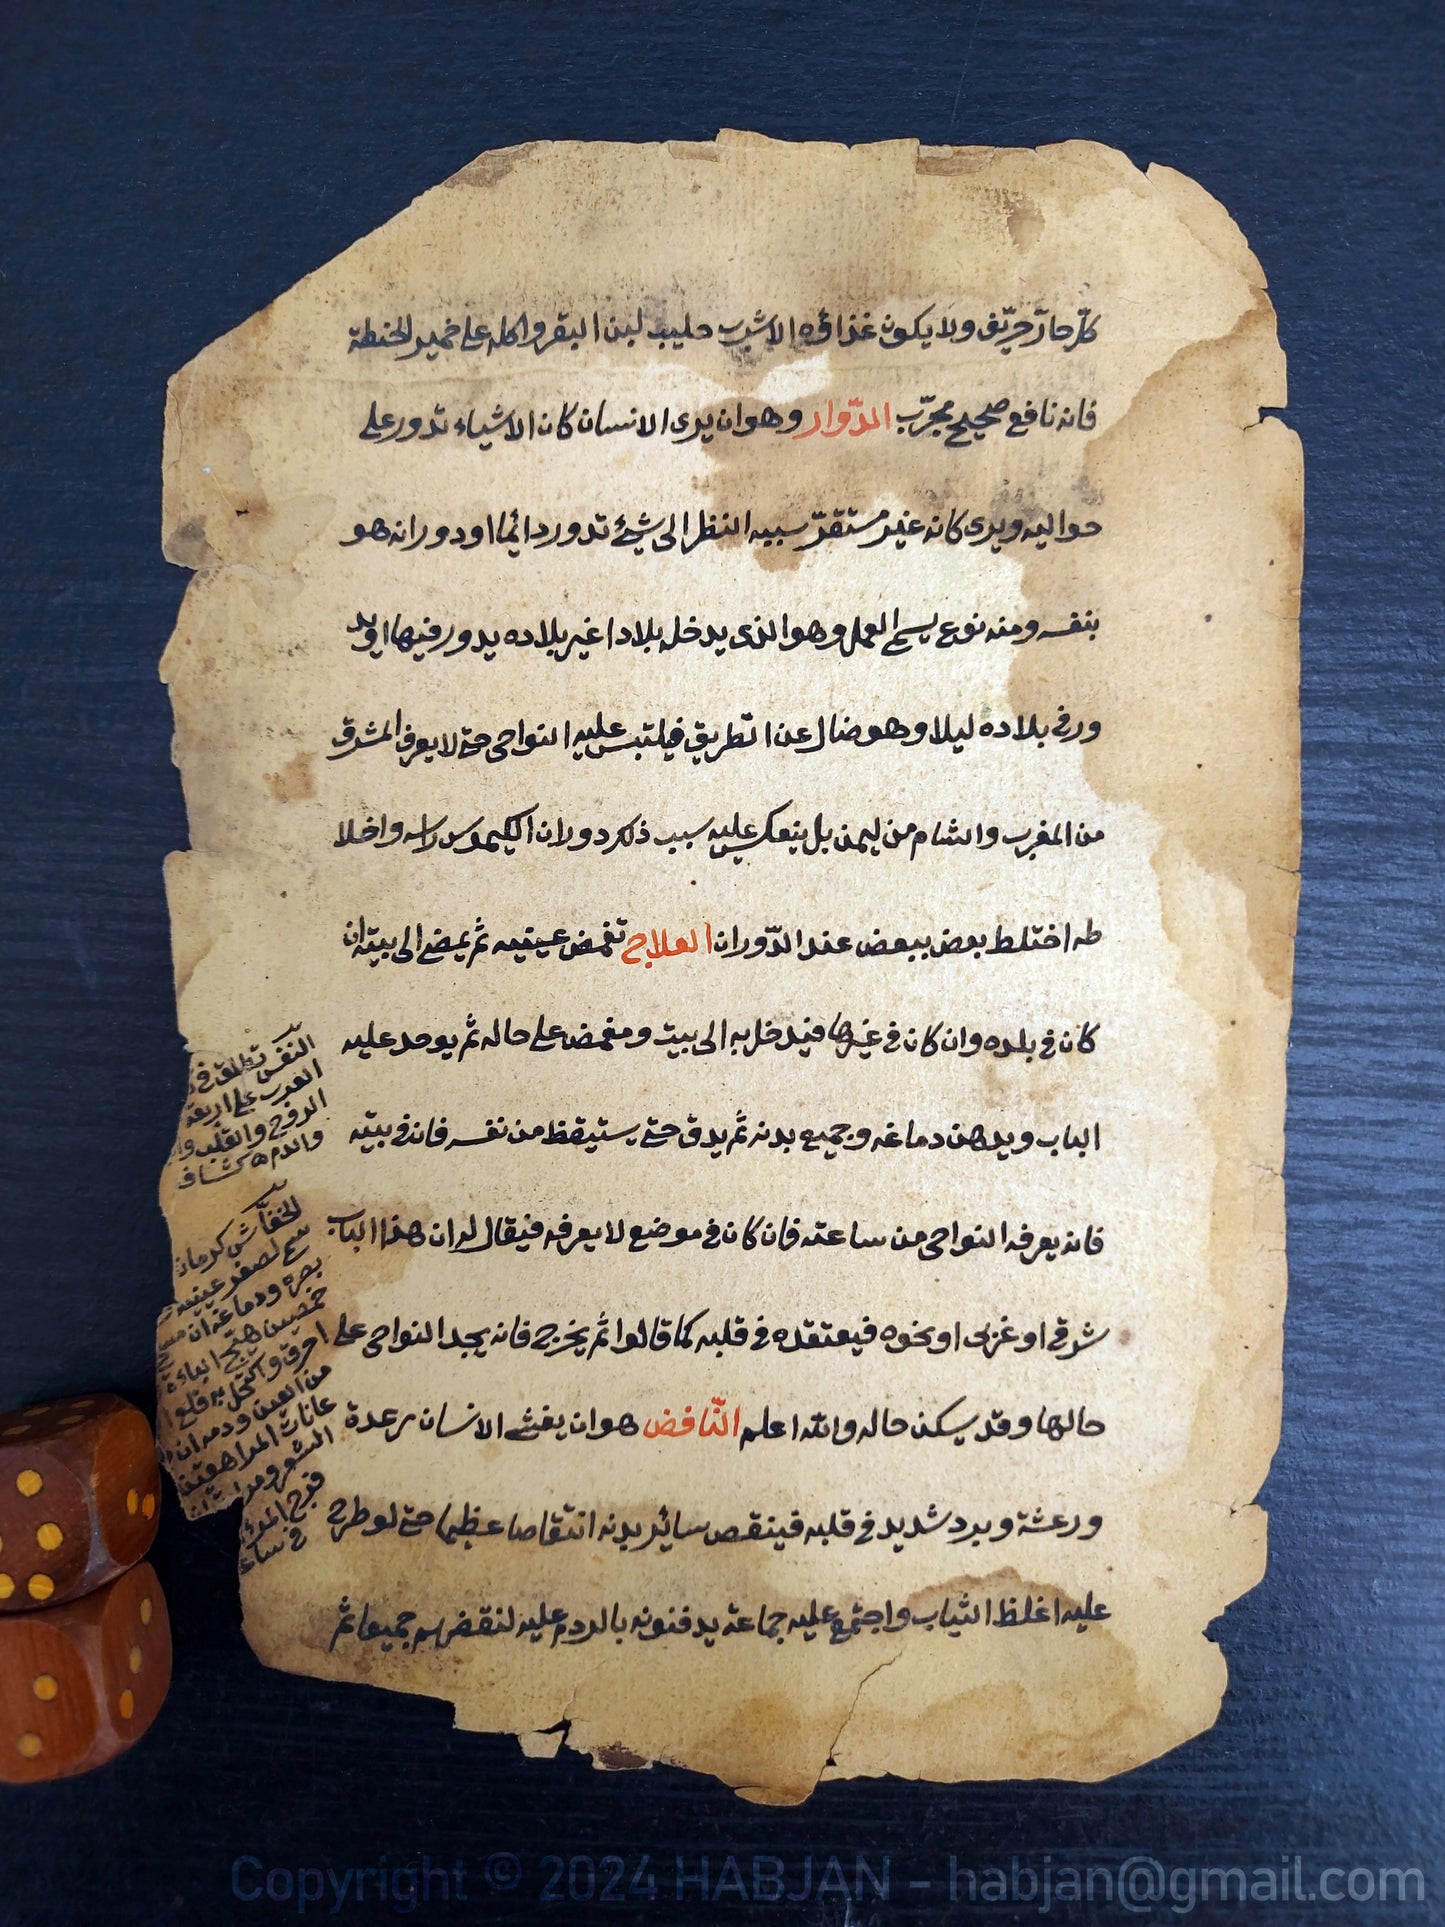 كلّ حارّ حرّيف ولا يكون غذاؤه الا شرب حليب لبن البقر واكله على خمير الحنطة
فانه نافع صحيح مجرّب الدّوار وهو ان يرى الانسان كان الاشياء تدور على
حواليه ويرى كانه غير مستقرّ سببه النظر الى شئ تدور دائما او دورانه هو
بنفسه ومنه نوع يسمى العمل وهو الذى يدخله بلادا غير بلاده يدور فيها او يد
ور فى بلاده ليلا وهو ضال عن الطريق فيلتبس عليه النواحى حتى لا يعرف المشرق
من المغرب والشام من ليمن بل ينعكس عليه سبب ذلك دوران الكيموس راسه واخلا
طه اختلط بعض ببعض عند الدّوران العلاج تغمض عينيه ثم يمضى الى بيته ان
كان فى بلده وان كان فى غيرها فيدخل به الى بيت ومغمض على حاله ثم يوحد عليه
الباب ويدهن دماغه وجميع بدنه ثم يدق حتى يستيقظ من نفسه فان فى بيته
فانه يعرف النواحى من ساعته فان كان فى موضع لا يعرفه فيقال له ان هذا الباب
شرقى او غربى او نحوه فيعتقده فى قلبه كما قالوا ثم يخرج فانه يجد النواحى على
حالها وقد يسكن حاله والله اعلم النّافض هو ان يغشى الانسان رعدة
ورعشة وبرد شديد فى قلبه فينقص سائر بدنه انتقاصا عظيما حتى لو طرح
عليه اغلظ الثياب واجتمع عليه جماعة يدفنونه بالردم عليه لنقضهم جميعا ثم
النفس تطلق فى
العرب على اربعة
الروح والقلب وا
والدم كشاف
الخفاش
لصغر عينيه
بصره ودماغه ان
احرق واكتحل به قلع
من العين ودمه ان
عانات المراهقين
الشعر
فرج المرءة
Copyright © 2024 HABJAN - habjan@gmail.com